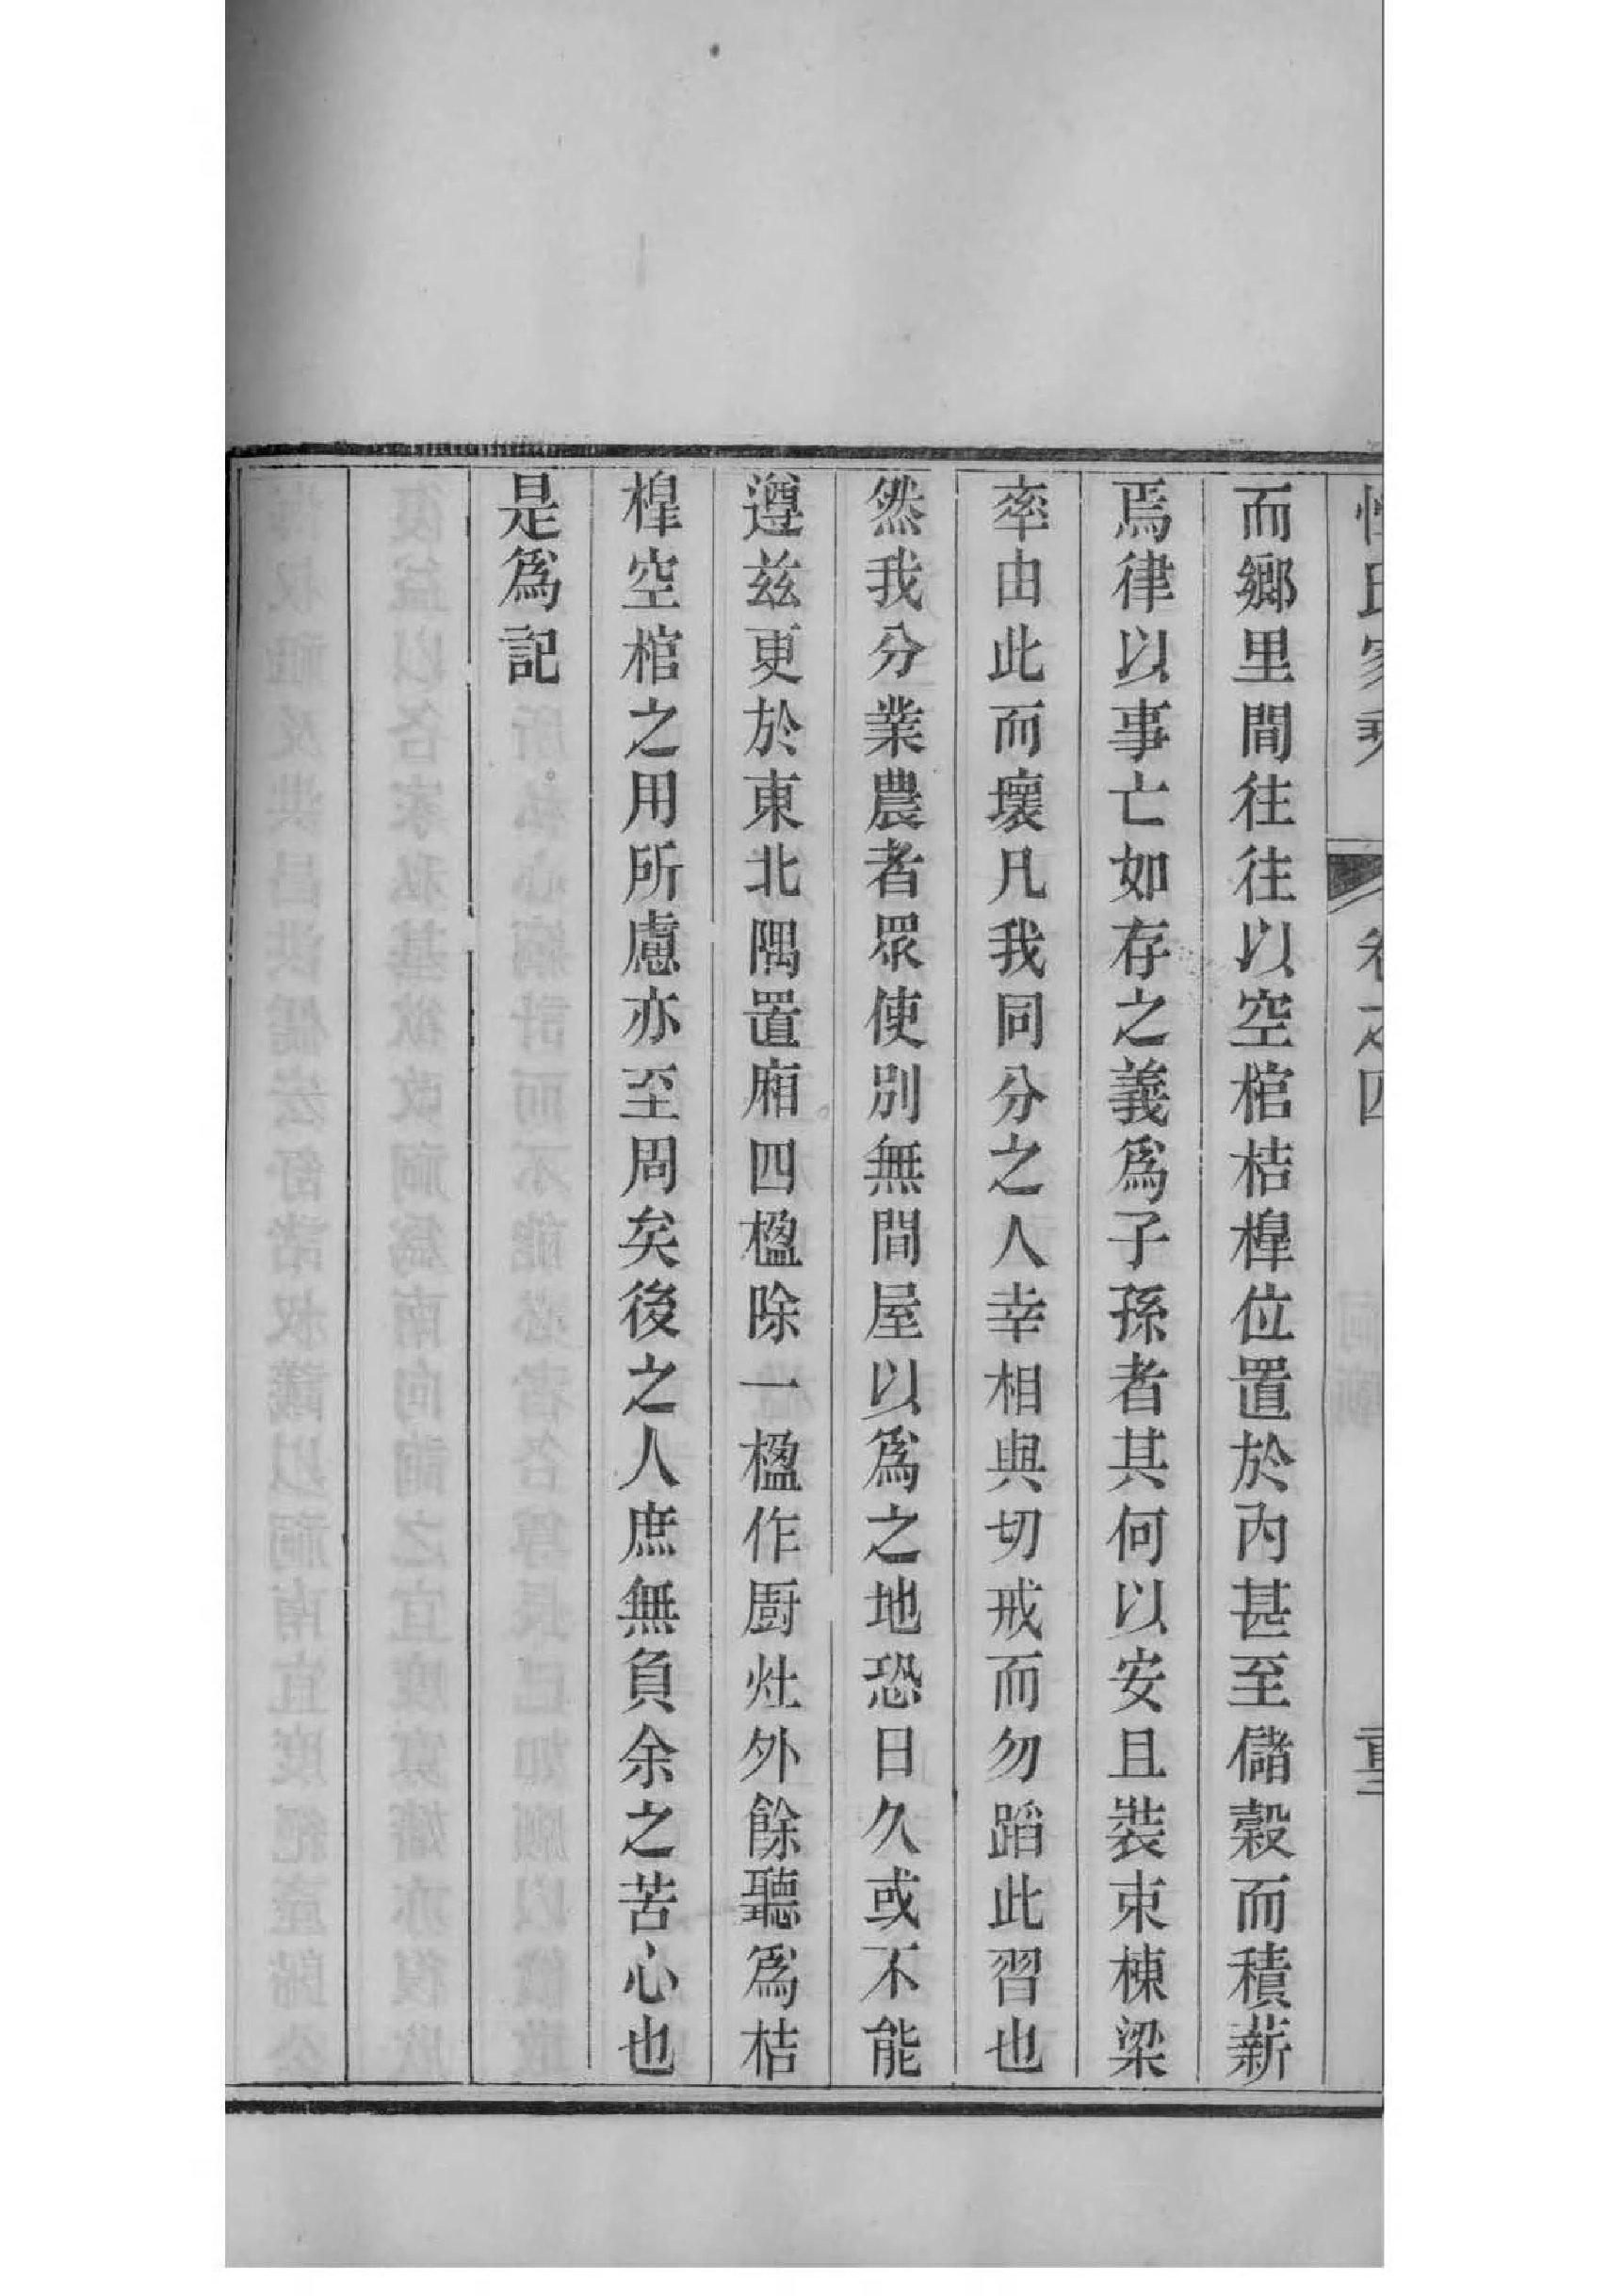 惲氏家乘 卷之四
而鄉里間往往以空棺桔槔位置於內甚至儲穀而積薪
焉律以事亡如存之義爲子孫者其何以安且裝束棟梁
率由此而壞凡我同分之人幸相與切戒而勿蹈此習也
然我分業農者眾使別無間屋以爲之地恐日久或不能
遵茲更於東北隅置廂四楹除一楹作厨灶外餘聽爲桔
槔空棺之用所慮亦至周矣後之人庶無負余之苦心也
是爲記